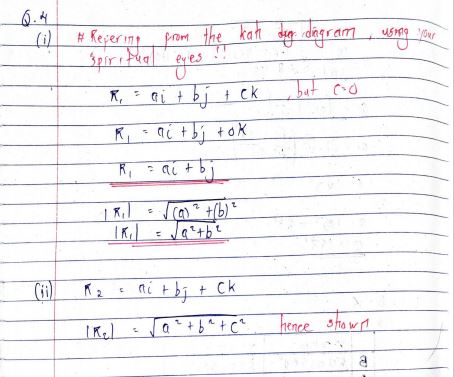 Q.4
(i) # Refering from the kah diagram, using your
spiritual eyes !!
R₁ = ai + bj + ck , but c=0
R₁ = ai + bj + 0k
R₁ = ai + bj
|R₁| = √(a)² + (b)²
|R₁| = √a² + b²
(ii) R₂ = ai + bj + ck
|R₂| = √a² + b² + c² hence shown